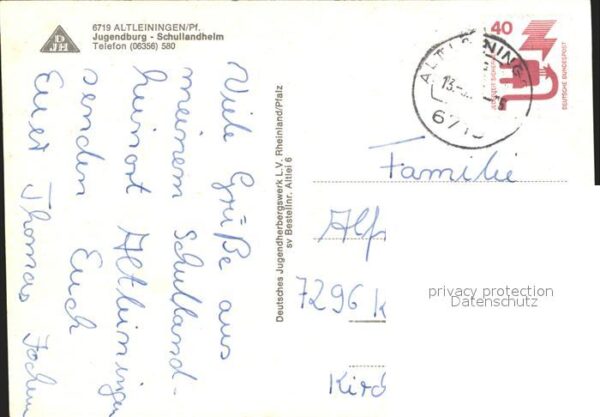 DJH
6719 ALTLEININGEN/Pf.
Jugendburg - Schullandheim
Telefon (06356) 580
Viele Grüße aus
meinem Schulland-
heimort Altleiningen
senden Euch
Euer Thomas Jochen
Deutsches Jugendherbergswerk L.V. Rheinland/Pfalz
sv Bestellnr. Altlei 6
40
DEUTSCHE BUNDESPOST
ALTLEININGEN
13.
6719
Familie
Alf
7296 K
Kird
privacy protection
Datenschutz